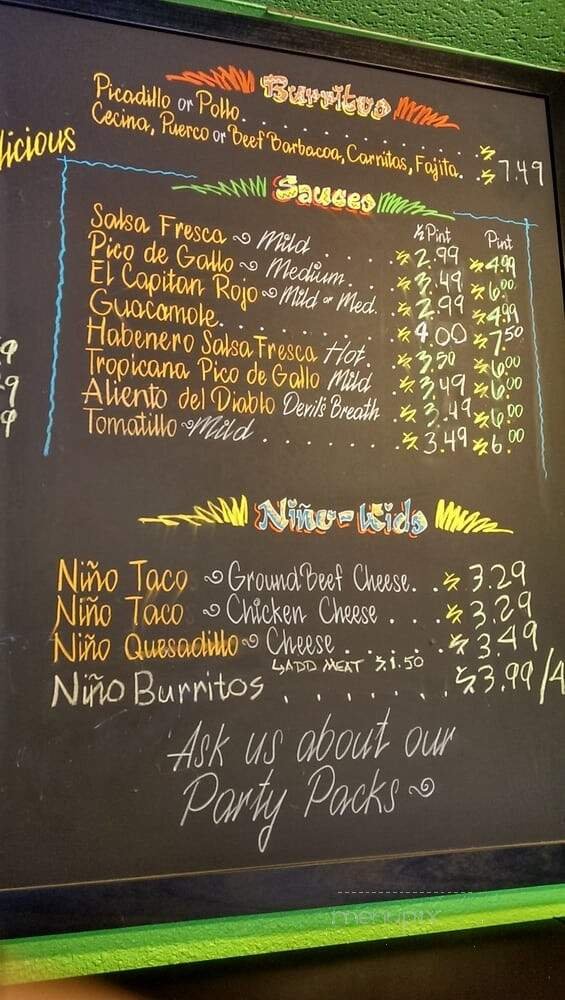 Burritos
Picadillo or Pollo . . . . . . . . . . . . $
Cecina, Puerco or Beef Barbacoa, Carnitas, Fajita. . $ 7.49
licious
Sauces
½ Pint Pint
Salsa Fresca ~ Mild . . . . $ 2.99 $ 4.99
Pico de Gallo ~ Medium . . . $ 3.49 $ 6.00
El Capitan Rojo ~ Mild or Med. $ 2.99 $ 4.99
Guacamole. . . . . . . . . . . $ 4.00 $ 7.50
Habenero Salsa Fresca Hot. $ 3.50 $ 6.00
Tropicana Pico de Gallo Mild $ 3.49 $ 6.00
Aliento del Diablo Devil's Breath $ 3.49 $ 6.00
Tomatillo ~ Mild . . . . . . . . $ 3.49 $ 6.00
9
9
9
Niño-Kids
Niño Taco ~ Ground Beef Cheese. . $ 3.29
Niño Taco ~ Chicken Cheese . . . . $ 3.29
Niño Quesadillo ~ Cheese . . . . . . $ 3.49
↳ ADD MEAT $1.50
Niño Burritos . . . . . . . . $3.99/4
Ask us about our
Party Packs ~
menupix